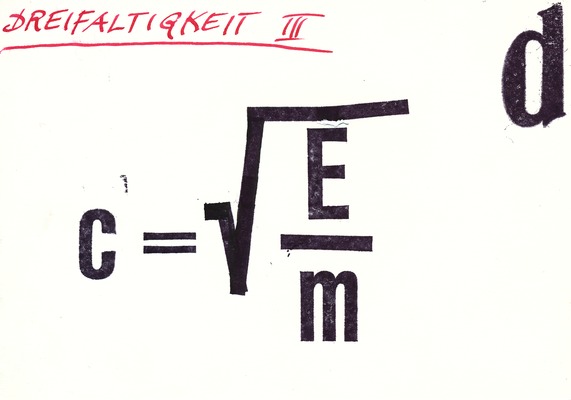 DREIFALTIGKEIT III
d
c = √E/m